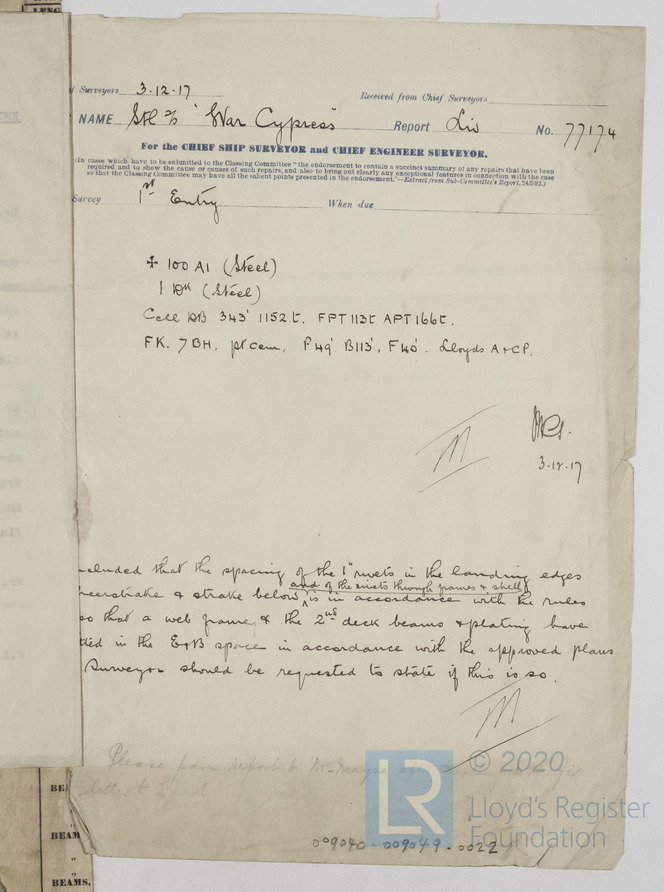 f Surveyors 3-12-17 Received from Chief Surveyors
NAME Stl S/S "War Cypress" Report Liv No. 77174
For the CHIEF SHIP SURVEYOR and CHIEF ENGINEER SURVEYOR.
(In cases which have to be submitted to the Classing Committee "the endorsement to contain a succinct summary of any repairs that have been
required and to show the cause or causes of such repairs, and also to bring out clearly any exceptional features in connection with the case
so that the Classing Committee may have all the salient points presented in the endorsement."—Extract from Sub-Committee's Report, 24/5/92.)
Survey 1st Entry When due
✠ 100 A1 (Steel)
1 Dk (Steel)
Cell DB 343' 1152t. FPT 113t APT 166t.
FK. 7BH, pt cem, P49' B113', F40'. Lloyds A & CP.
3.12.17
cluded that the spacing of the 1" rivets in the landing edges
and of the rivets through frames & shell
heerstrake & strake below is in accordance with the rules
so that a web frame, & the 2nd deck beams & plating have
tted in the E&B space in accordance with the approved plans
Surveyor should be requested to state if this is so.
Please pass report to Mr
letter to
© 2020
LR
Lloyd's Register
Foundation
009040-009049-0022
BE
BEAM
"
"
BEAMS,